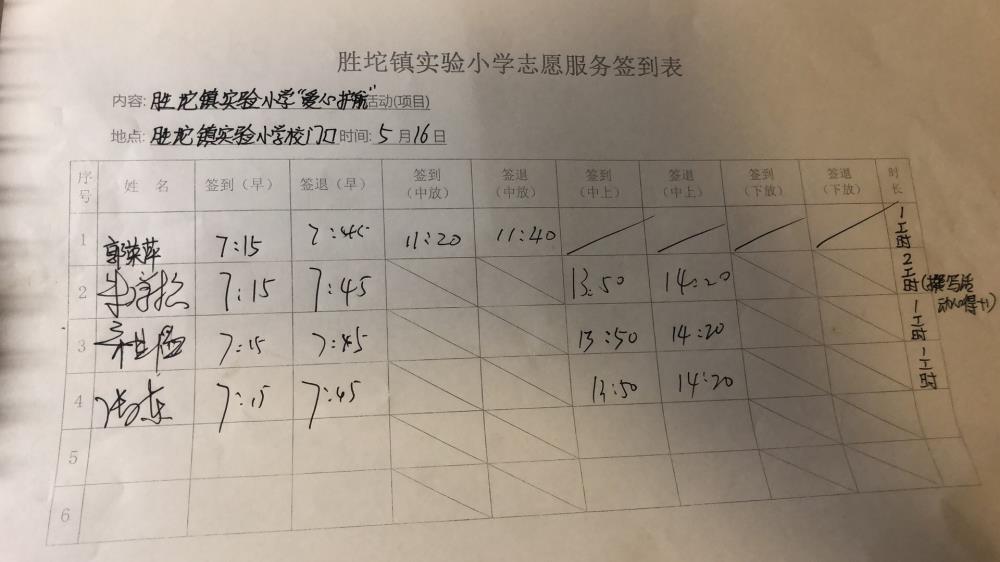 胜坨镇实验小学志愿服务签到表
内容: 胜坨镇实验小学“爱心护航”活动(项目)
地点: 胜坨镇实验小学校门口 时间: 5 月 16 日
序号 姓 名 签到（早） 签退（早） 签到（中放） 签退（中放） 签到（中上） 签退（中上） 签到（下放） 签退（下放） 时长
1 郭荣萍 7:15 7:45 11:20 11:40 1小时
2 7:15 7:45 13:50 14:20 2小时(撰写活动心得+1)
3 7:15 7:45 13:50 14:20 1小时
4 7:15 7:45 13:50 14:20 1小时
5
6